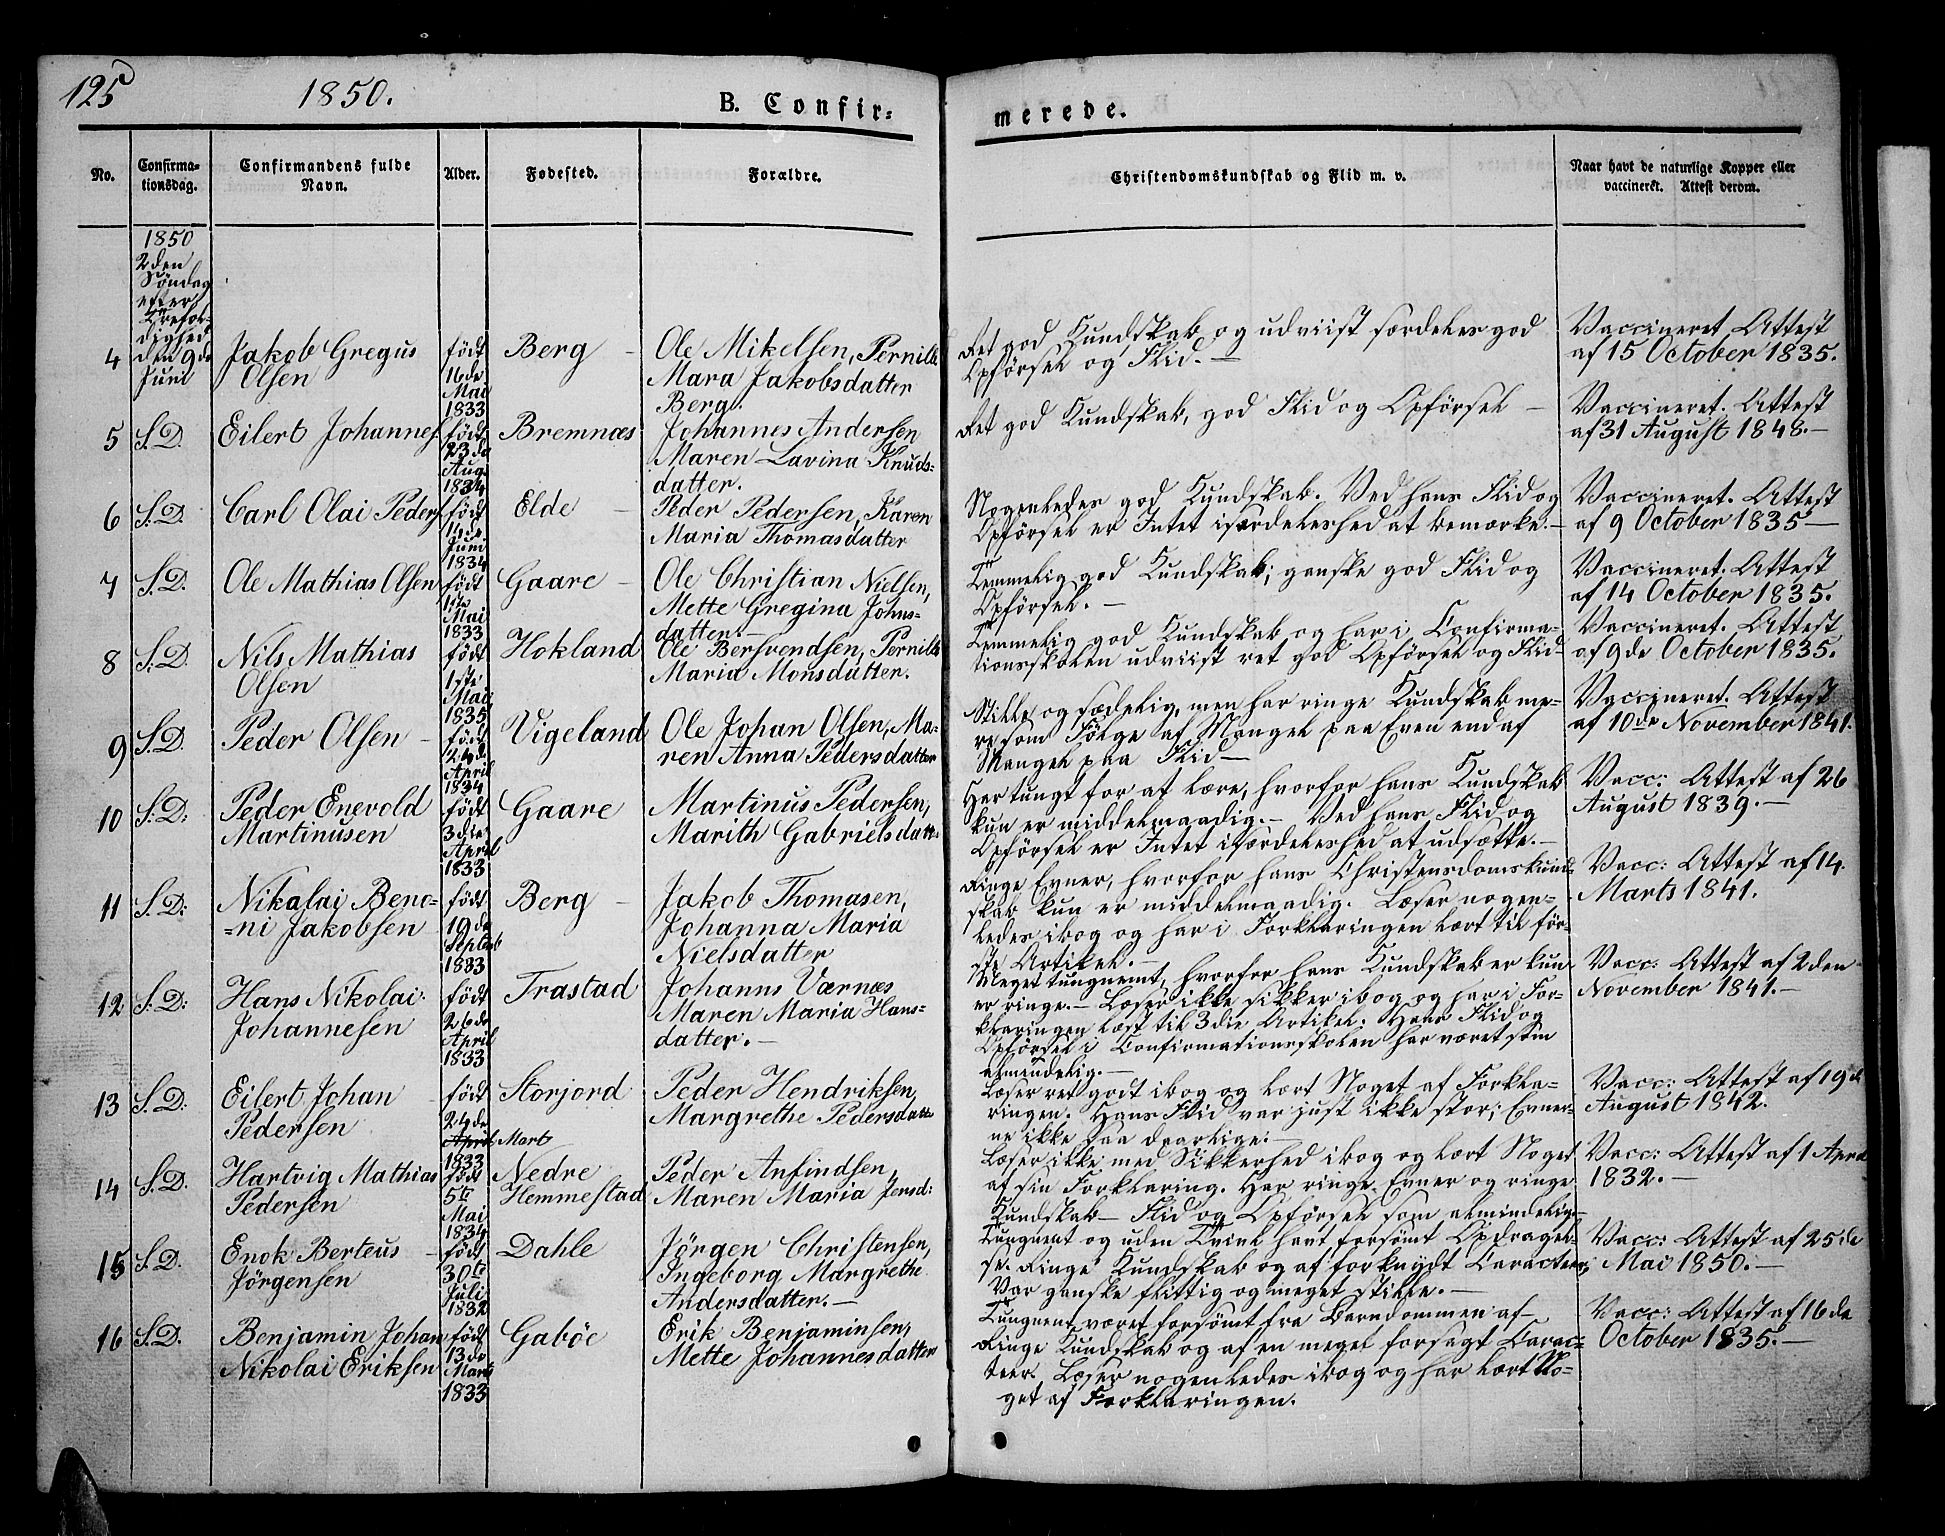 125
1850.
B. Confir=
merede.
No.
Confirma-
tionsdag.
Confirmandens fulde
Navn.
Alder.
Fødested.
Forældre.
Christendomskundskab og Flid m. v.
Naar havt de naturlige Kopper eller
vaccineret. Attest derom.
1850
2den
Søndag
efter
Trefol-
dighed
den 9de
Juni
4
Jakob Gregus
Olsen
født
16de
Mai
1833
Berg –
Ole Mikelsen, Pernille
Mara Jakobsdatter
Berg.
Ret god Kundskab og udviist særdeles god
Opførsel og Flid. –
Vaccineret. Attest
af 15 October 1835.
5
S.D.
Eilert Johannes
født
23de
Aug.
1834
Bremnæs
Johannes Andersen
Maren Lavina Knuds-
datter.
Ret god Kundskab, god Flid og Opførsel –
Vaccineret. Attest
af 31 August 1848. –
6
S.D.
Carl Olai Peders
født
Juni
1834
Elde –
Peder Pedersen, Karen
Maria Thomasdatter
Nogenledes god Kundskab. Ved hans Flid og
Opførsel er Intet isærdeleshed at bemærke. –
Vaccineret. Attest
af 9 October 1835 –
7
S.D.
Ole Mathias Olsen
født
1ste
Mai
1833
Gaare –
Ole Christian Nielsen,
Mette Gregina Johns-
datter. –
Temmelig god Kundskab; ganske god Flid og
Opførsel. –
Vaccineret. Attest
af 14 October 1835.
8
S.D.
Nils Mathias
Olsen
født
1ste
Mai
1835
Hokland
Ole Bersvendsen, Pernille
Maria Monsdatter.
Temmelig god Kundskab og har i Confirma-
tionsskolen udviist ret god Opførsel og Flid
Vaccineret. Attest
af 9de October 1835.
9
S.D.
Peder Olsen –
født
24de
April
1834
Vigeland
Ole Johan Olsen, Ma-
ren Anna Pedersdatter
Stille og sædelig, men har ringe Kundskab me-
re som Følge af Mangel paa Evne end af
Mangel paa Flid –
Vaccineret. Attest
af 10de November 1841.
10
S.D.
Peder Enevold
Martinusen
født
3die
April
1833
Gaare
Martinus Pedersen,
Marith Gabrielsdatter
Har tungt for at lære, hvorfor hans Kundskab
kun er middelmaadig. – Ved hans Flid og
Opførsel er Intet isærdeleshed at udsætte. –
Vacc: Attest af 26
August 1839. –
11
S.D.
Nikolai Beno-
=ni Jakobsen
født
19de
Septemb
1833
Berg –
Jakob Thomasen,
Johanna Maria
Nielsdatter
Ringe Evner, hvorfor hans Christensdomskund-
skab kun er middelmaadig. Læser nogen-
ledes i bog og har i Forklaringen lært til før-
ste Artikel. –
Vacc: Attest af 14.
Marts 1841.
12
S.D.
Hans Nikolai
Johannesen
født
26de
April
1833
Trastad
Johanns Værnæs
Maren Maria Hans-
datter. –
Meget tungnemt, hvorfor hans Kundskab er kun
er ringe. – Læser ikke sikker i bog og har i For-
klaringen læst til 3die Artikel. Hans Flid og
Opførsel i Confirmationsskolen har været som
almindelig. –
Vacc: Attest af 2den
November 1841. –
13
S.D.
Eilert Johan
Pedersen
født
24de
April Mart
1833
Storjord
Peder Hendriksen,
Margrethe Pedersdatter
Læser ret godt i bog og lært Noget af Forkla-
ringen. Hans Flid var just ikke stor; Evner-
ne ikke saa daarlige. –
Vacc: Attest af 19de
August 1842.
14
S.D.
Hartvig Mathias
Pedersen
født
5te
Mai
1834
Nedre
Hemmestad
Peder Anfindsen,
Maren Maria Jensd:
Læser ikke med Sikkerhed i bog og lært Noget
af sin Forklaring. Har ringe Evner og ringe
Kundskab – Flid og Opførsel som almindelig –
Vacc: Attest af 1 April
1832. –
15
S.D.
Enok Berteus –
Jørgensen
født
30te
Juli
1832
Dahle
Jørgen Christensen,
Ingeborg Margrethe
Andersdatter. –
Tungnemt og uden Tvivl havt forsømt Opdragel-
se. Ringe Kundskab og af forknydt Caracteer;
Var ganske flittig og meget stille. –
Vacc: Attest af 25de
Mai 1850. –
16
S.D.
Benjamin Johan
Nikolai Eriksen
født
13de
Marts
1833
Gabøe
Erik Benjaminsen,
Mette Johannesdatter
Tungnemt, været forsømt fra Barndommen af –
Ringe Kundskab og af en meget forsagt Carac-
teer. Læser nogenledes i bog og har lært No-
get af Forklaringen.
Vacc: Attest af 16de
October 1835. –